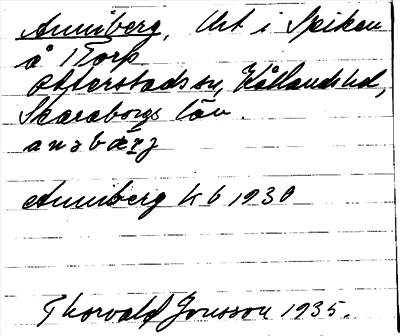 Anniberg, Urt i Spiken
å Torp
Otterstads sn, Kållands hd,
Skaraborgs län.
Anniberg kb 1930
Thorvald Jonsson 1935.